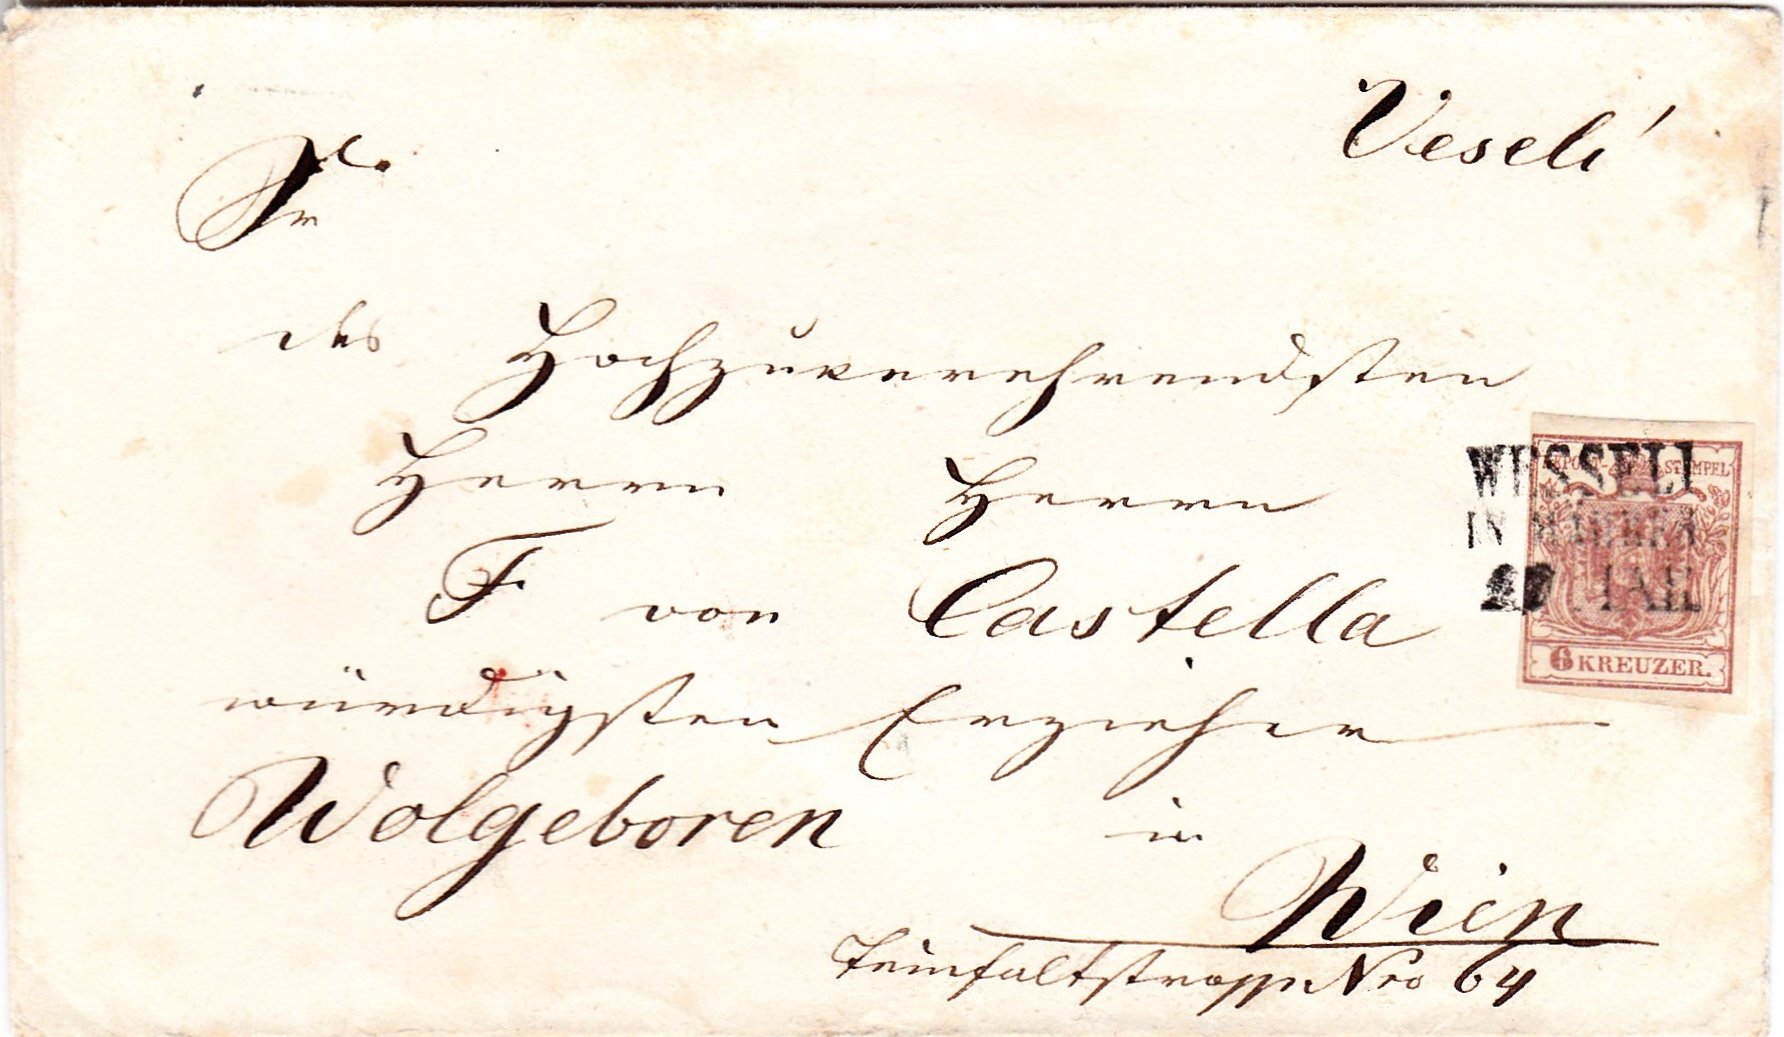 Veselí
Sr
des Hochzuverehrendsten
Herrn Herrn
F von Castella
würdigsten Erzieher
Wolgeboren in
Wien
Teinfaltstrasse Nro 64
WESSELI
IN MAEHREN
MAR
STEMPEL
6 KREUZER.